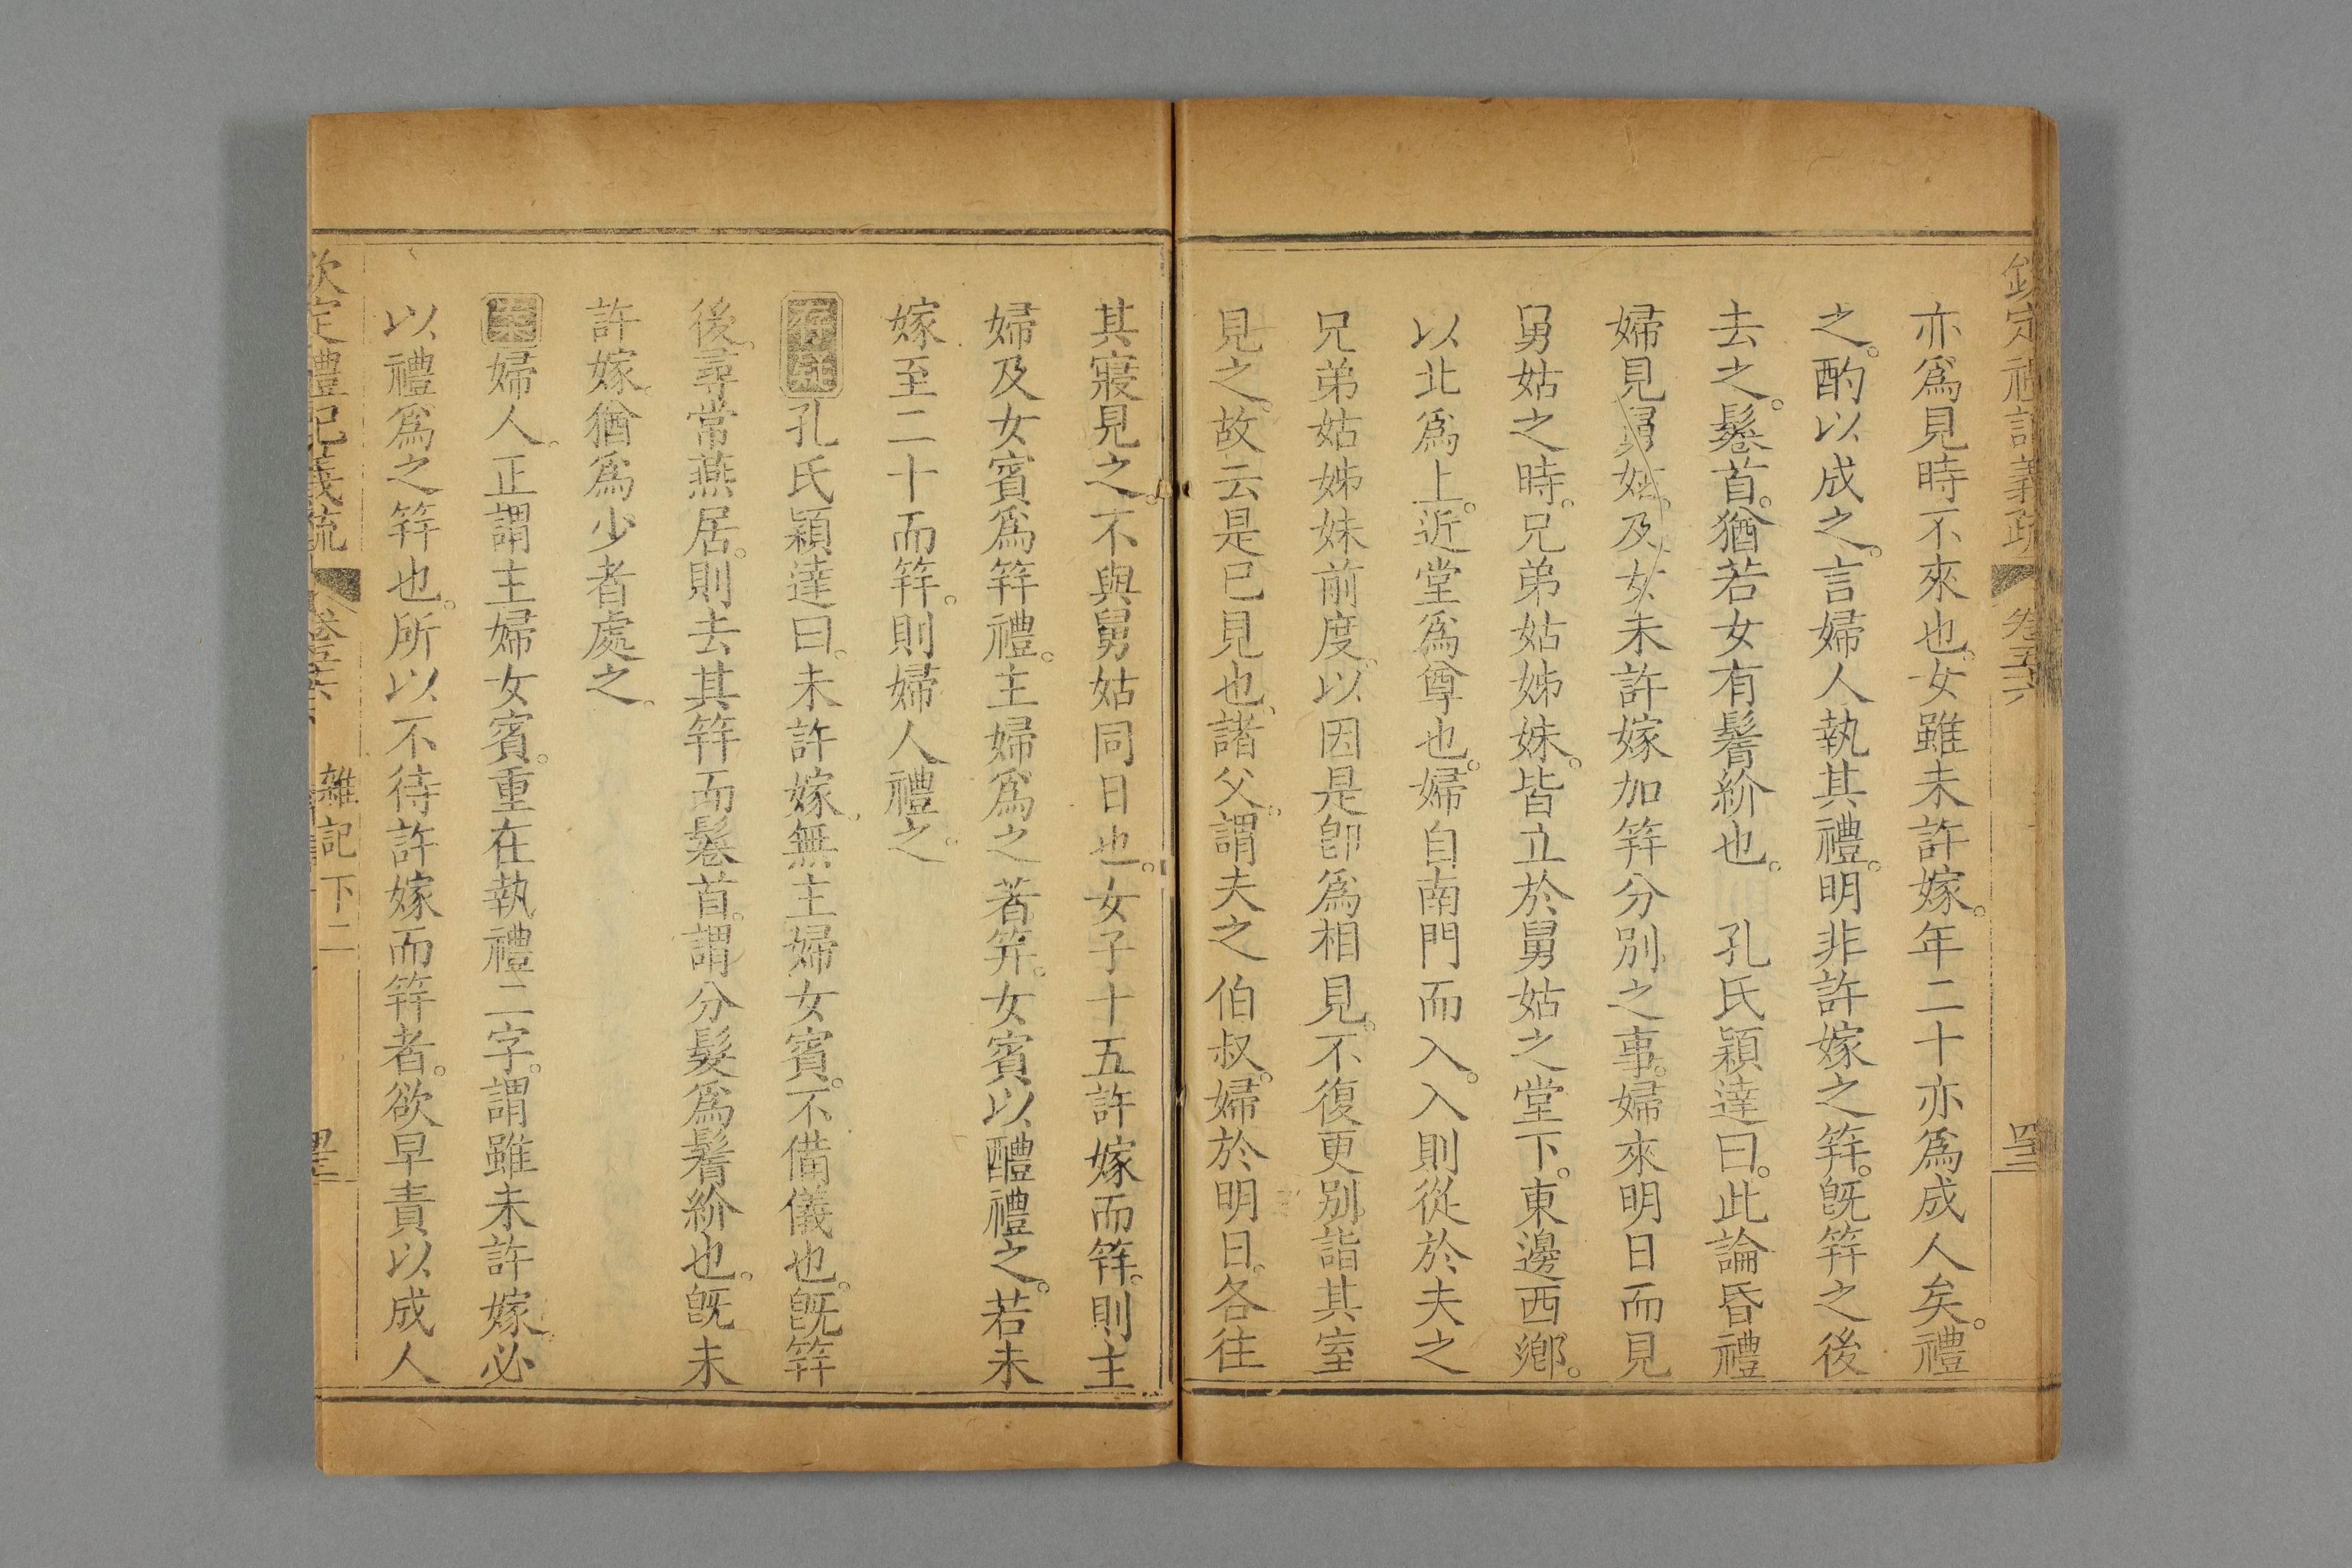 欽定禮記義疏 卷五十六
亦爲見時不來也。女雖未許嫁。年二十亦爲成人矣。禮
之。酌以成之。言婦人執其禮。明非許嫁之笄。旣笄之後
去之。鬈首。猶若女有鬌紒也。 孔氏穎達曰。此論昏禮
婦見舅姑。及女未許嫁加笄分别之事。婦來明日而見
舅姑之時。兄弟姑姊妹。皆立於舅姑之堂下。東邊西鄉。
以北爲上。近堂爲尊也。婦自南門而入。入則從於夫之
兄弟姑姊妹前度。以因是卽爲相見。不復更别詣其室
見之。故云是已見也。諸父。謂夫之伯叔。婦於明日。各往
其寢見之。不與舅姑同日也。女子十五許嫁而笄。則主
婦及女賓爲笄禮。主婦爲之著笄。女賓以醴禮之。若未
嫁至二十而笄。則婦人禮之。
孔氏穎達曰。未許嫁。無主婦女賓。不備儀也。旣笄
後。尋常燕居。則去其笄而鬈首。謂分髮爲鬌紒也。旣未
許嫁。猶爲少者處之。
案婦人。正謂主婦女賓。重在執禮二字。謂雖未許嫁。必
以禮爲之笄也。所以不待許嫁而笄者。欲早責以成人
欽定禮記義疏 卷五十六 雜記下二